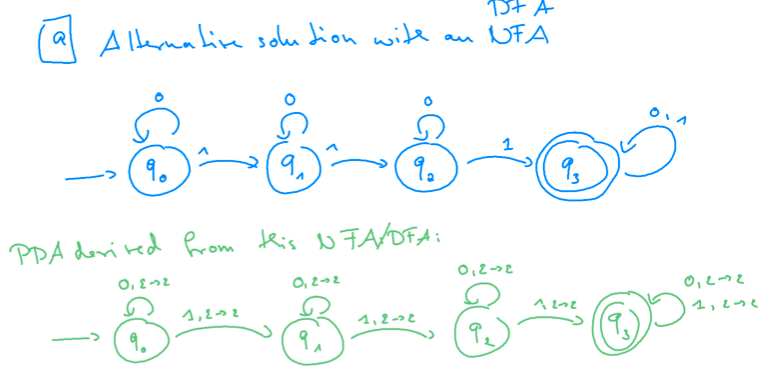 DFA
a Alternative solution with an NFA
0 0 0 0, 1
1 1 1
q0 q1 q2 q3
PDA derived from this NFA/DFA:
0, ε→ε 0, ε→ε 0, ε→ε 0, ε→ε
1, ε→ε 1, ε→ε 1, ε→ε 1, ε→ε
q0 q1 q2 q3